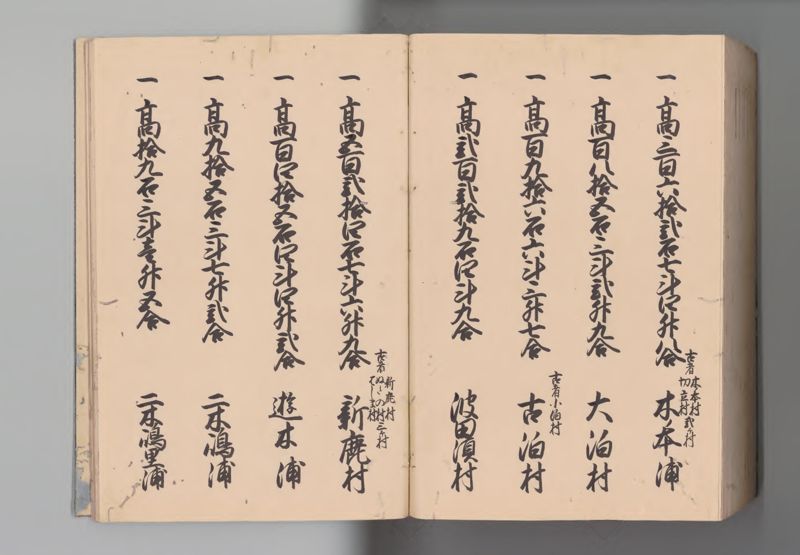 一 高三百六拾弐石七斗四升八合 木本浦
古者 木本村 切立村 弐ヶ村
一 高百八拾五石三斗弐升九合 大泊村
一 高百九拾六石六斗三升七合 古泊村
古者小泊村
一 高弐百弐拾九石四斗九合 波田須村
一 高五百弐拾四石七斗六升九合 新鹿村
古者 新鹿村
一 高百四拾五石四斗四升弐合 遊木浦
一 高九拾五石三斗七升弐合 二木嶋浦
一 高拾九石三斗壱升五合 二木嶋里浦